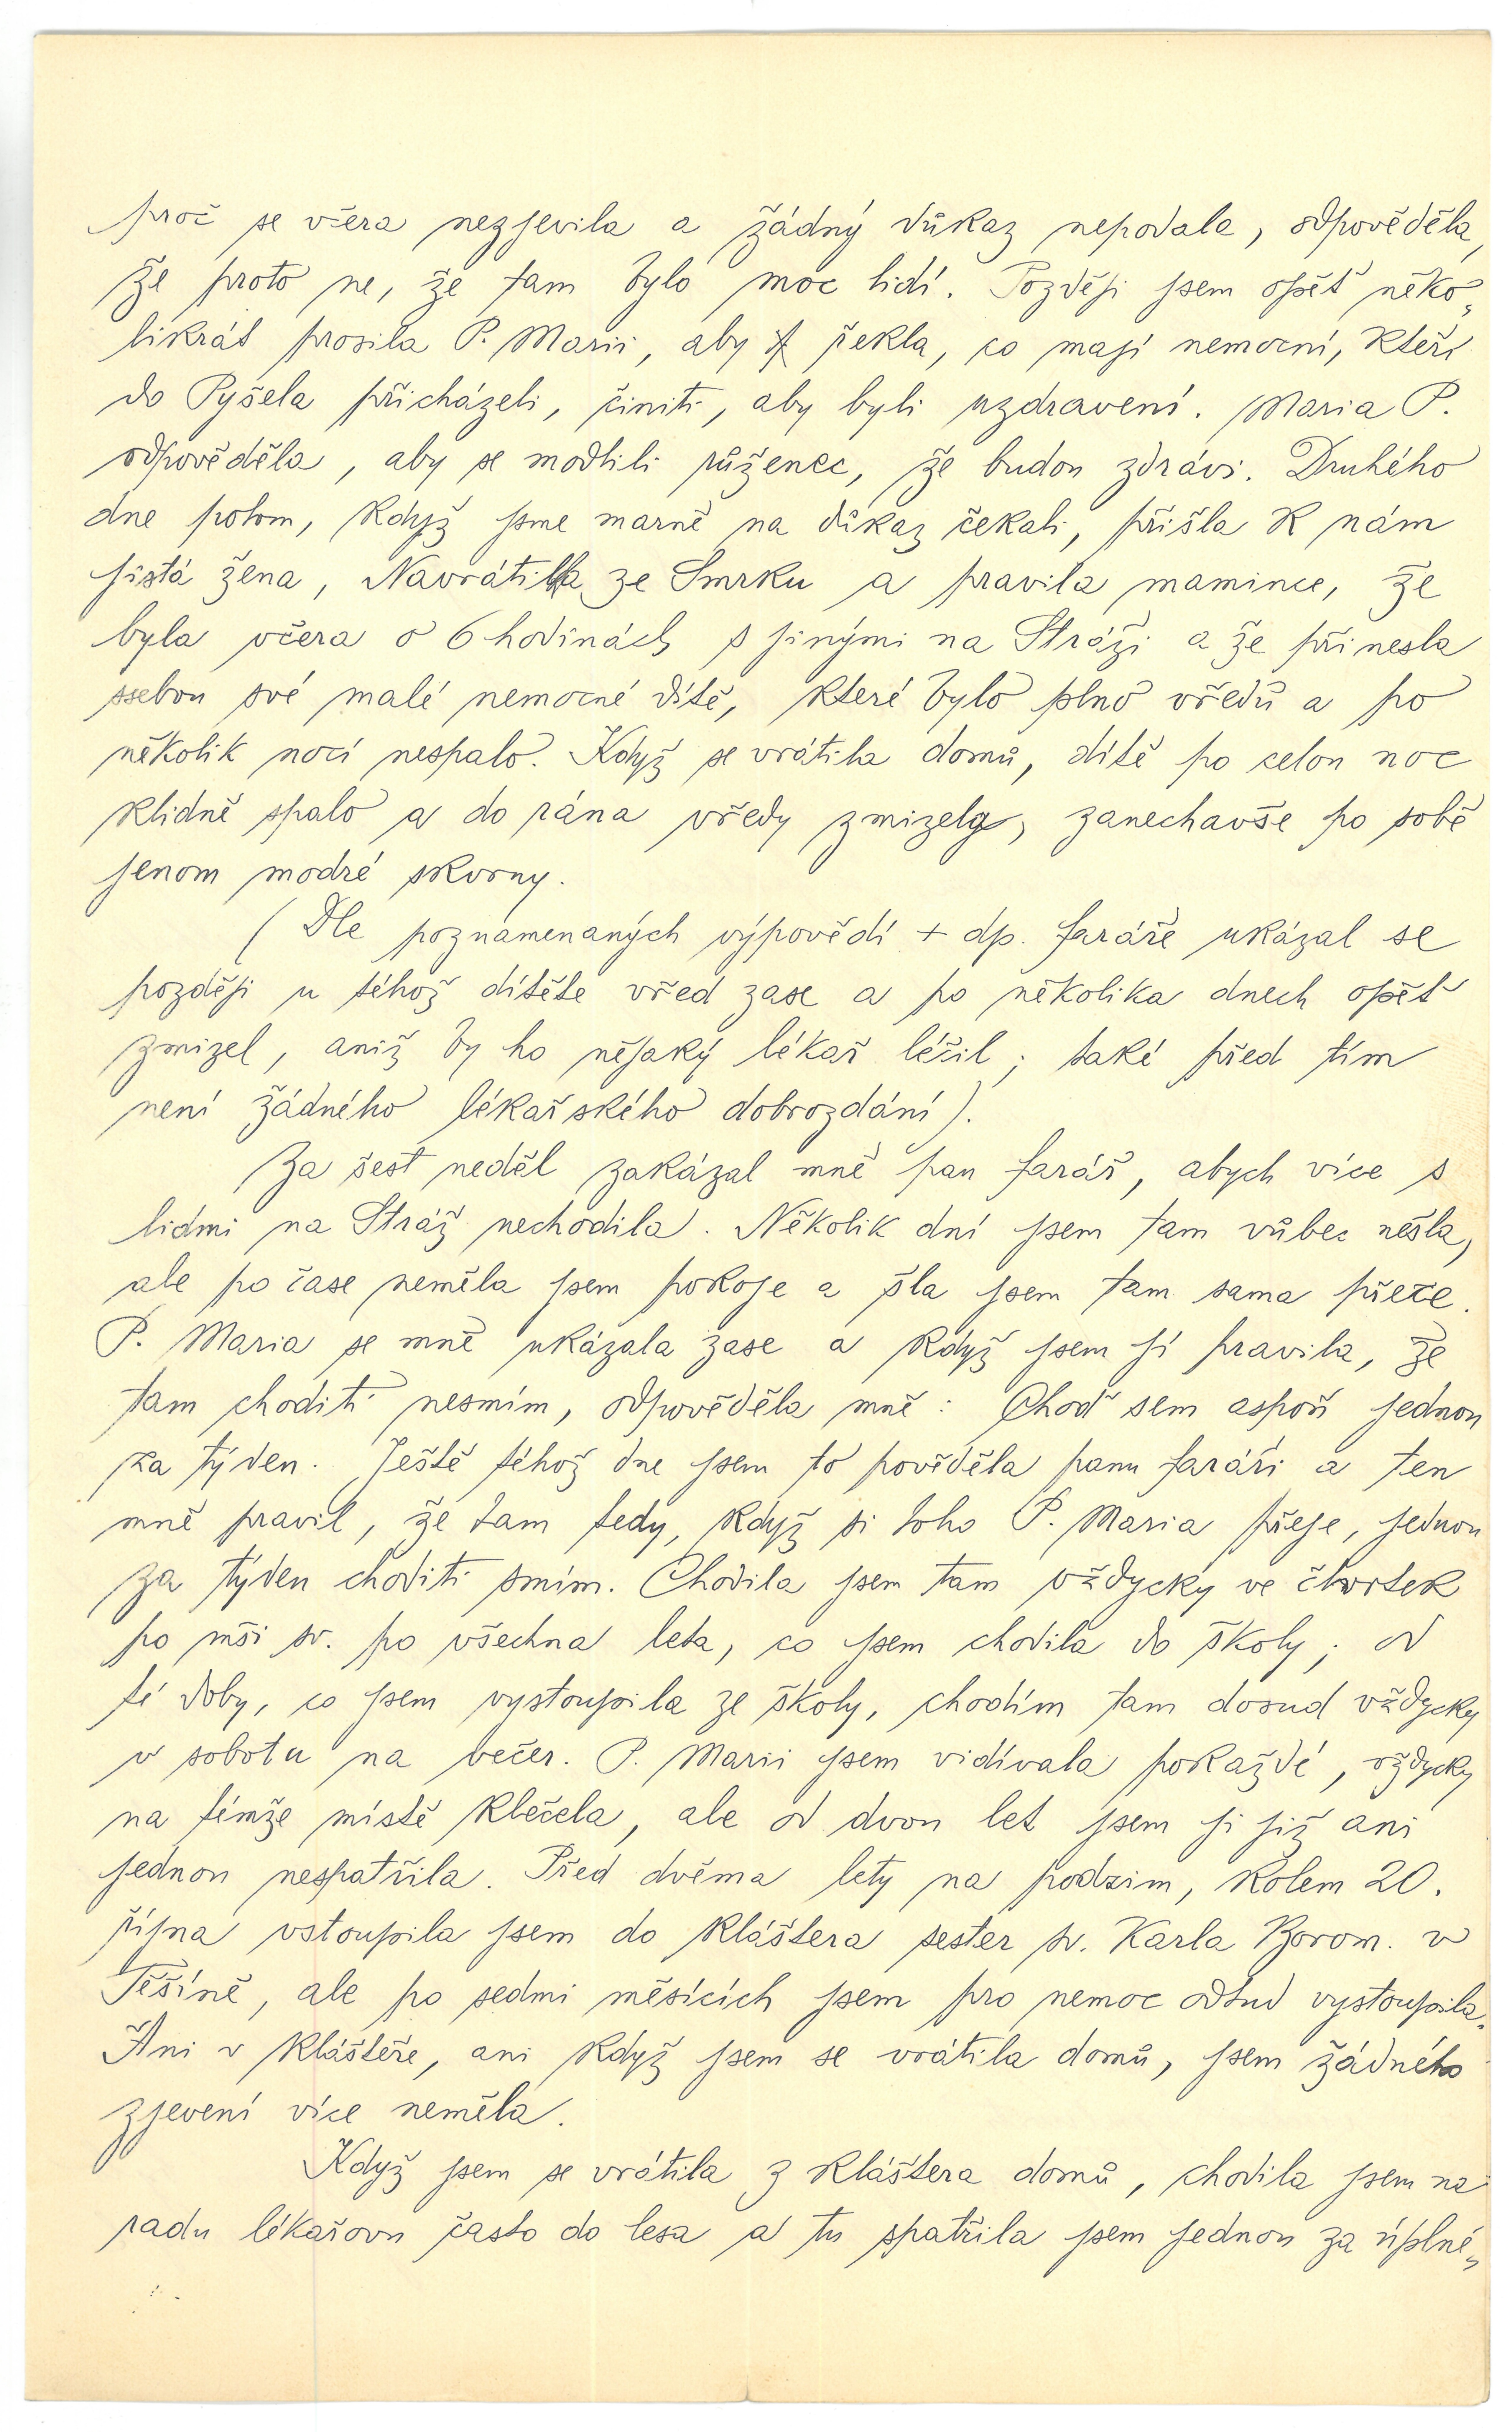 proč se včera nezjevila a žádný důkaz nepodala, odpověděla,
že proto ne, že tam bylo moc lidí. Později jsem opět něko„
likrát prosila P. Marii, aby řekla, co mají nemocní, kteří
do Pyšela přicházeli, činiti, aby byli uzdraveni. Maria P.
odpověděla, aby se modlili růženec, že budou zdrávi. Druhého
dne potom, když jsme marně na důkaz čekali, přišla k nám
jistá žena, Navrátilka ze Smrku a pravila mamince, že
byla včera o 6 hodinách s jinými na Stráži a že přinesla
ssebou své malé nemocné dítě, které bylo plno vředů a po
několik nocí nespalo. Když se vrátila domů, dítě po celou noc
klidně spalo a do rána vředy zmizely, zanechavše po sobě
jenom modré skvrny.
(Dle poznamenaných výpovědí + dp. faráře ukázal se
později u téhož dítěte vřed zase a po několika dnech opět
zmizel, aniž by ho nějaký lékař léčil; také před tím
není žádného lékařského dobrozdání).
Za šest neděl zakázal mně pan farář, abych více s
lidmi na Stráž nechodila. Několik dní jsem tam vůbec nešla,
ale po čase neměla jsem pokoje a šla jsem tam sama přece.
P. Maria se mně ukázala zase a když jsem jí pravila, že
tam choditi nesmím, odpověděla mně: Choď sem aspoň jednou
za týden. Ještě téhož dne jsem to pověděla panu faráři a ten
mně pravil, že tam tedy, když si toho P. Maria přeje, jednou
za týden choditi smím. Chodila jsem tam vždycky ve čtvrtek
po mši sv. po všechna leta, co jsem chodila do školy; od
té doby, co jsem vystoupila ze školy, chodím tam dosud vždycky
v sobotu na večer. P. Marii jsem vidívala pokaždé, vždycky
na témže místě klečela, ale od dvou let jsem ji již ani
jednou nespatřila. Před dvěma lety na podzim, kolem 20.
října vstoupila jsem do kláštera sester sv. Karla Borom. v
Těšíně, ale po sedmi měsících jsem pro nemoc odtud vystoupila.
Ani v klášteře, ani když jsem se vrátila domů, jsem žádného
zjevení více neměla.
Když jsem se vrátila z kláštera domů, chodila jsem na
radu lékařovu často do lesa a tu spatřila jsem jednou za úplné„